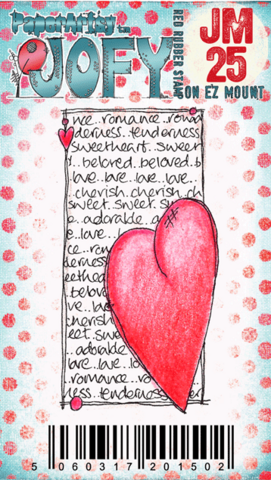 PaperArtsy
JOFY
RED RUBBER STAMP
JM
25
ON EZ MOUNT
nce..romance..roma
derness..tenderness
sweetheart..sweet
..beloved..beloved..b
love..love..love..love..
..cherish..cherish..ch
sweet..sweet..sw
e..adorable..a
e..love..
ce..rom
derness
eethea
belov
ove..
cherish
eet..swe
..adorable
love..love..lo
romance..ro
ness..tenderness
5 060317 201502